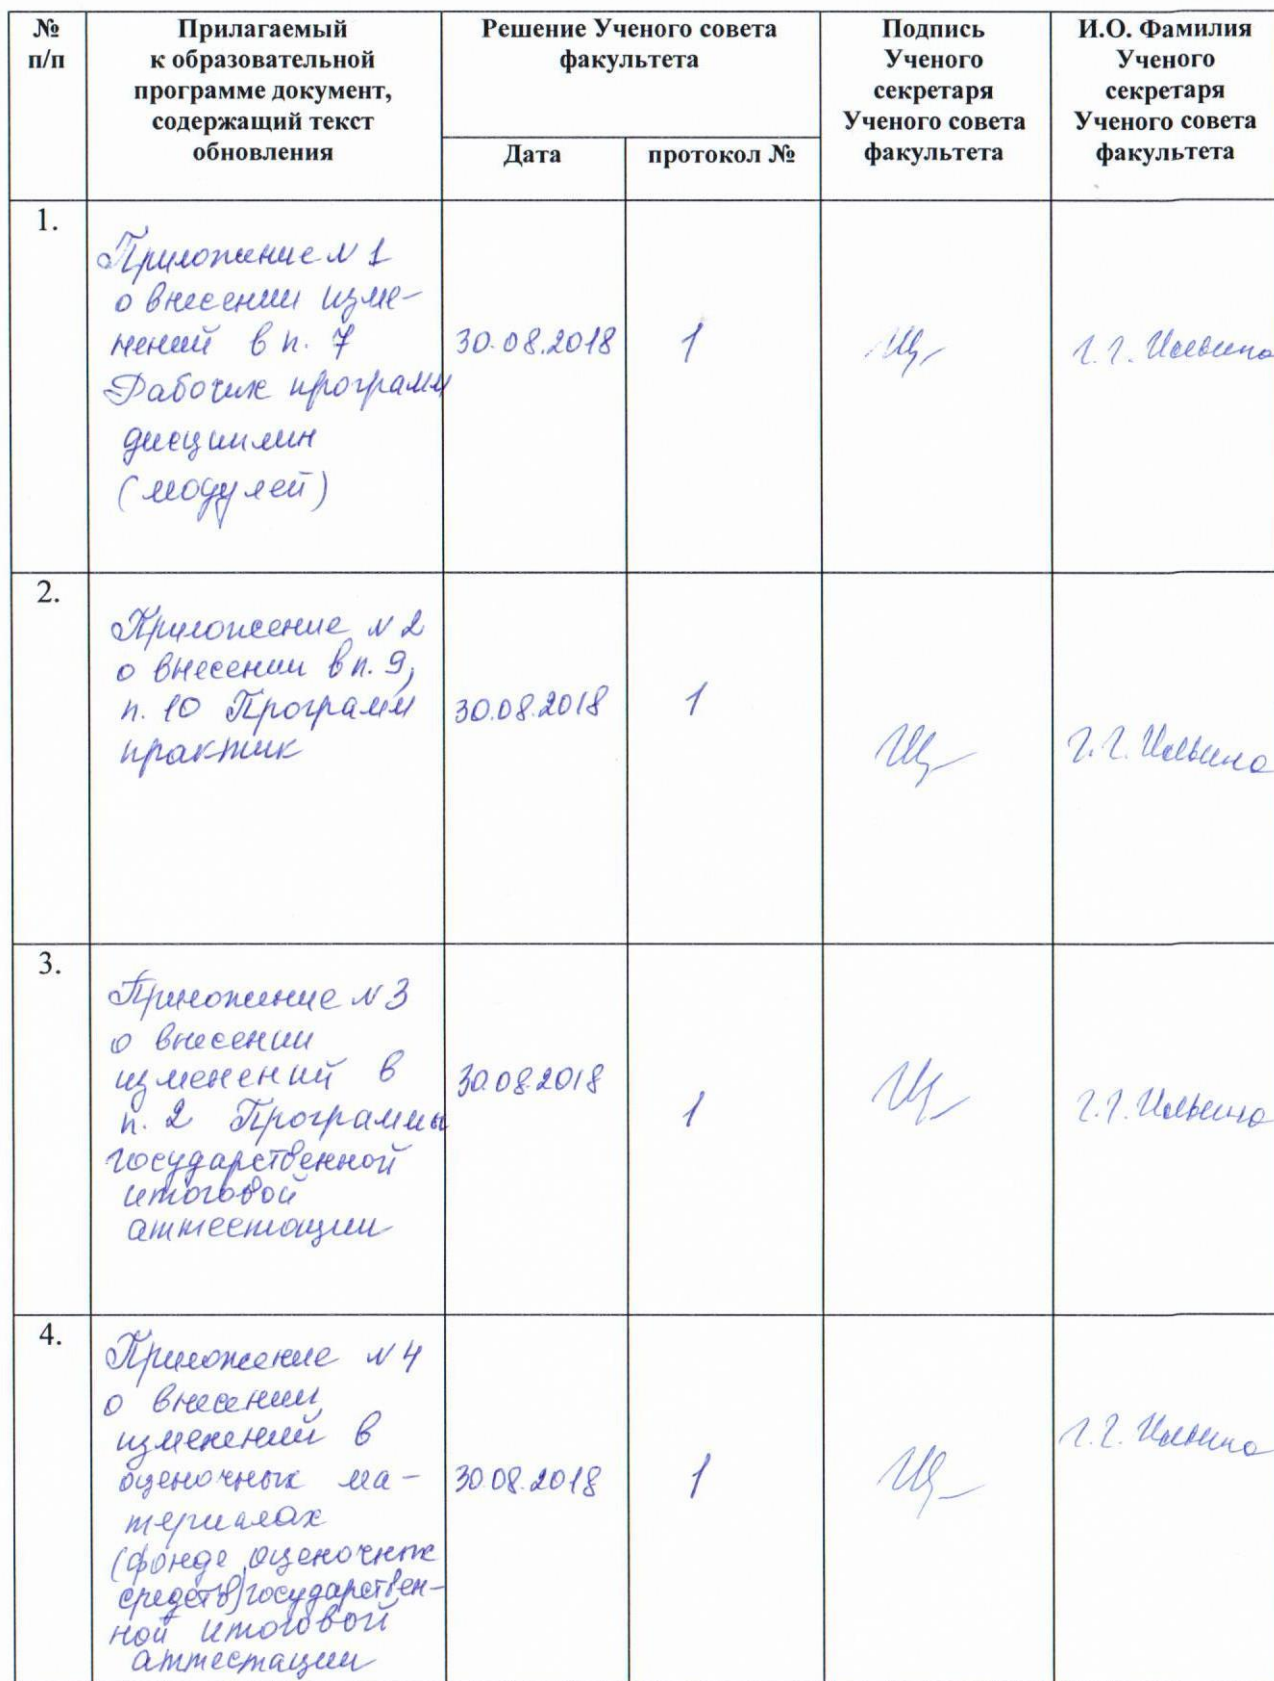 №
п/п
Прилагаемый
к образовательной
программе документ,
содержащий текст
обновления
Решение Ученого совета
факультета
Дата
протокол №
Подпись
Ученого
секретаря
Ученого совета
факультета
И.О. Фамилия
Ученого
секретаря
Ученого совета
факультета
1.
Приложение N 1
о внесении изме-
нений в п. 7
Рабочих программ
дисциплин
(модулей)
30.08.2018
1
Г.Г. Ильина
2.
Приложение N 2
о внесении в п. 9,
п. 10 Программ
практик
30.08.2018
1
Г.Г. Ильина
3.
Приложение N 3
о внесении
изменений в
п. 2 Программы
государственной
итоговой
аттестации
30.08.2018
1
Г.Г. Ильина
4.
Приложение N 4
о внесении
изменений в
оценочных ма-
териалах
(фонде оценочных
средств) государствен-
ной итоговой
аттестации
30.08.2018
1
Г.Г. Ильина